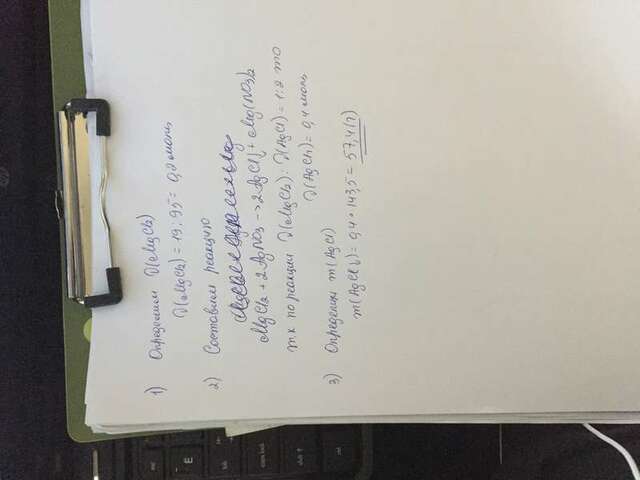 1) Определим ν(MgCl₂)
ν(MgCl₂) = 19 : 95 = 0,2 моль
2) Составим реакцию
MgCl₂ + 2AgNO₃ → 2AgCl↓ + Mg(NO₃)₂
т к по реакции ν(MgCl₂) : ν(AgCl) = 1:2 то
ν(AgCl) = 0,4 моль
3) Определим m(AgCl)
m(AgCl) = 0,4 * 143,5 = 57,4 (г)